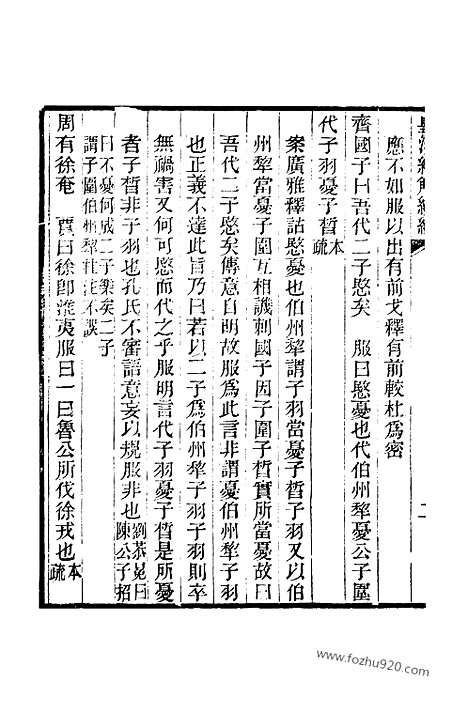 皇清經解續編
二
應不如服以出有前戈釋有前較杜爲密
齊國子曰吾代二子愍矣 服曰愍憂也代伯州犂憂公子圍
代子羽憂子晳本疏
案廣雅釋詁愍憂也伯州犂謂子羽當憂子晳子羽又以伯
州犂當憂子圍互相譏刺國子因子圍子晳實所當憂故曰
吾代二子愍矣傳意自明故服爲此言非謂憂伯州犂子羽
也正義不達此旨乃曰若以二子爲伯州犂子羽子羽則卒
無禍害又何可愍而代之乎服明言代子羽憂子晳是所憂
者子晳非子羽也孔氏不審語意妄以規服非也劉恭冕曰陳公子招
曰不憂何成二子樂矣二子
謂子圍伯州犂杜注不誤
周有徐奄 賈曰徐卽淮夷服曰一曰魯公所伐徐戎也本疏
www.fozhu920.com